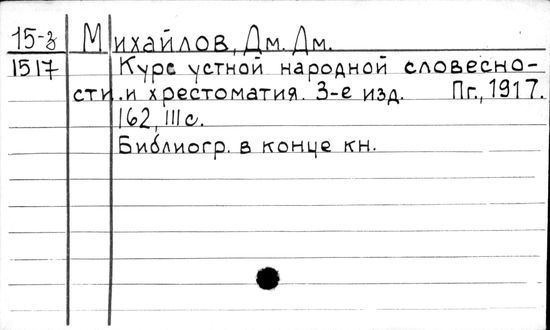 15-3 Михайлов, Дм. Дм.
1517 Курс устной народной словесно-
сти и хрестоматия. 3-е изд. Пг., 1917.
162, III с.
Библиогр. в конце кн.